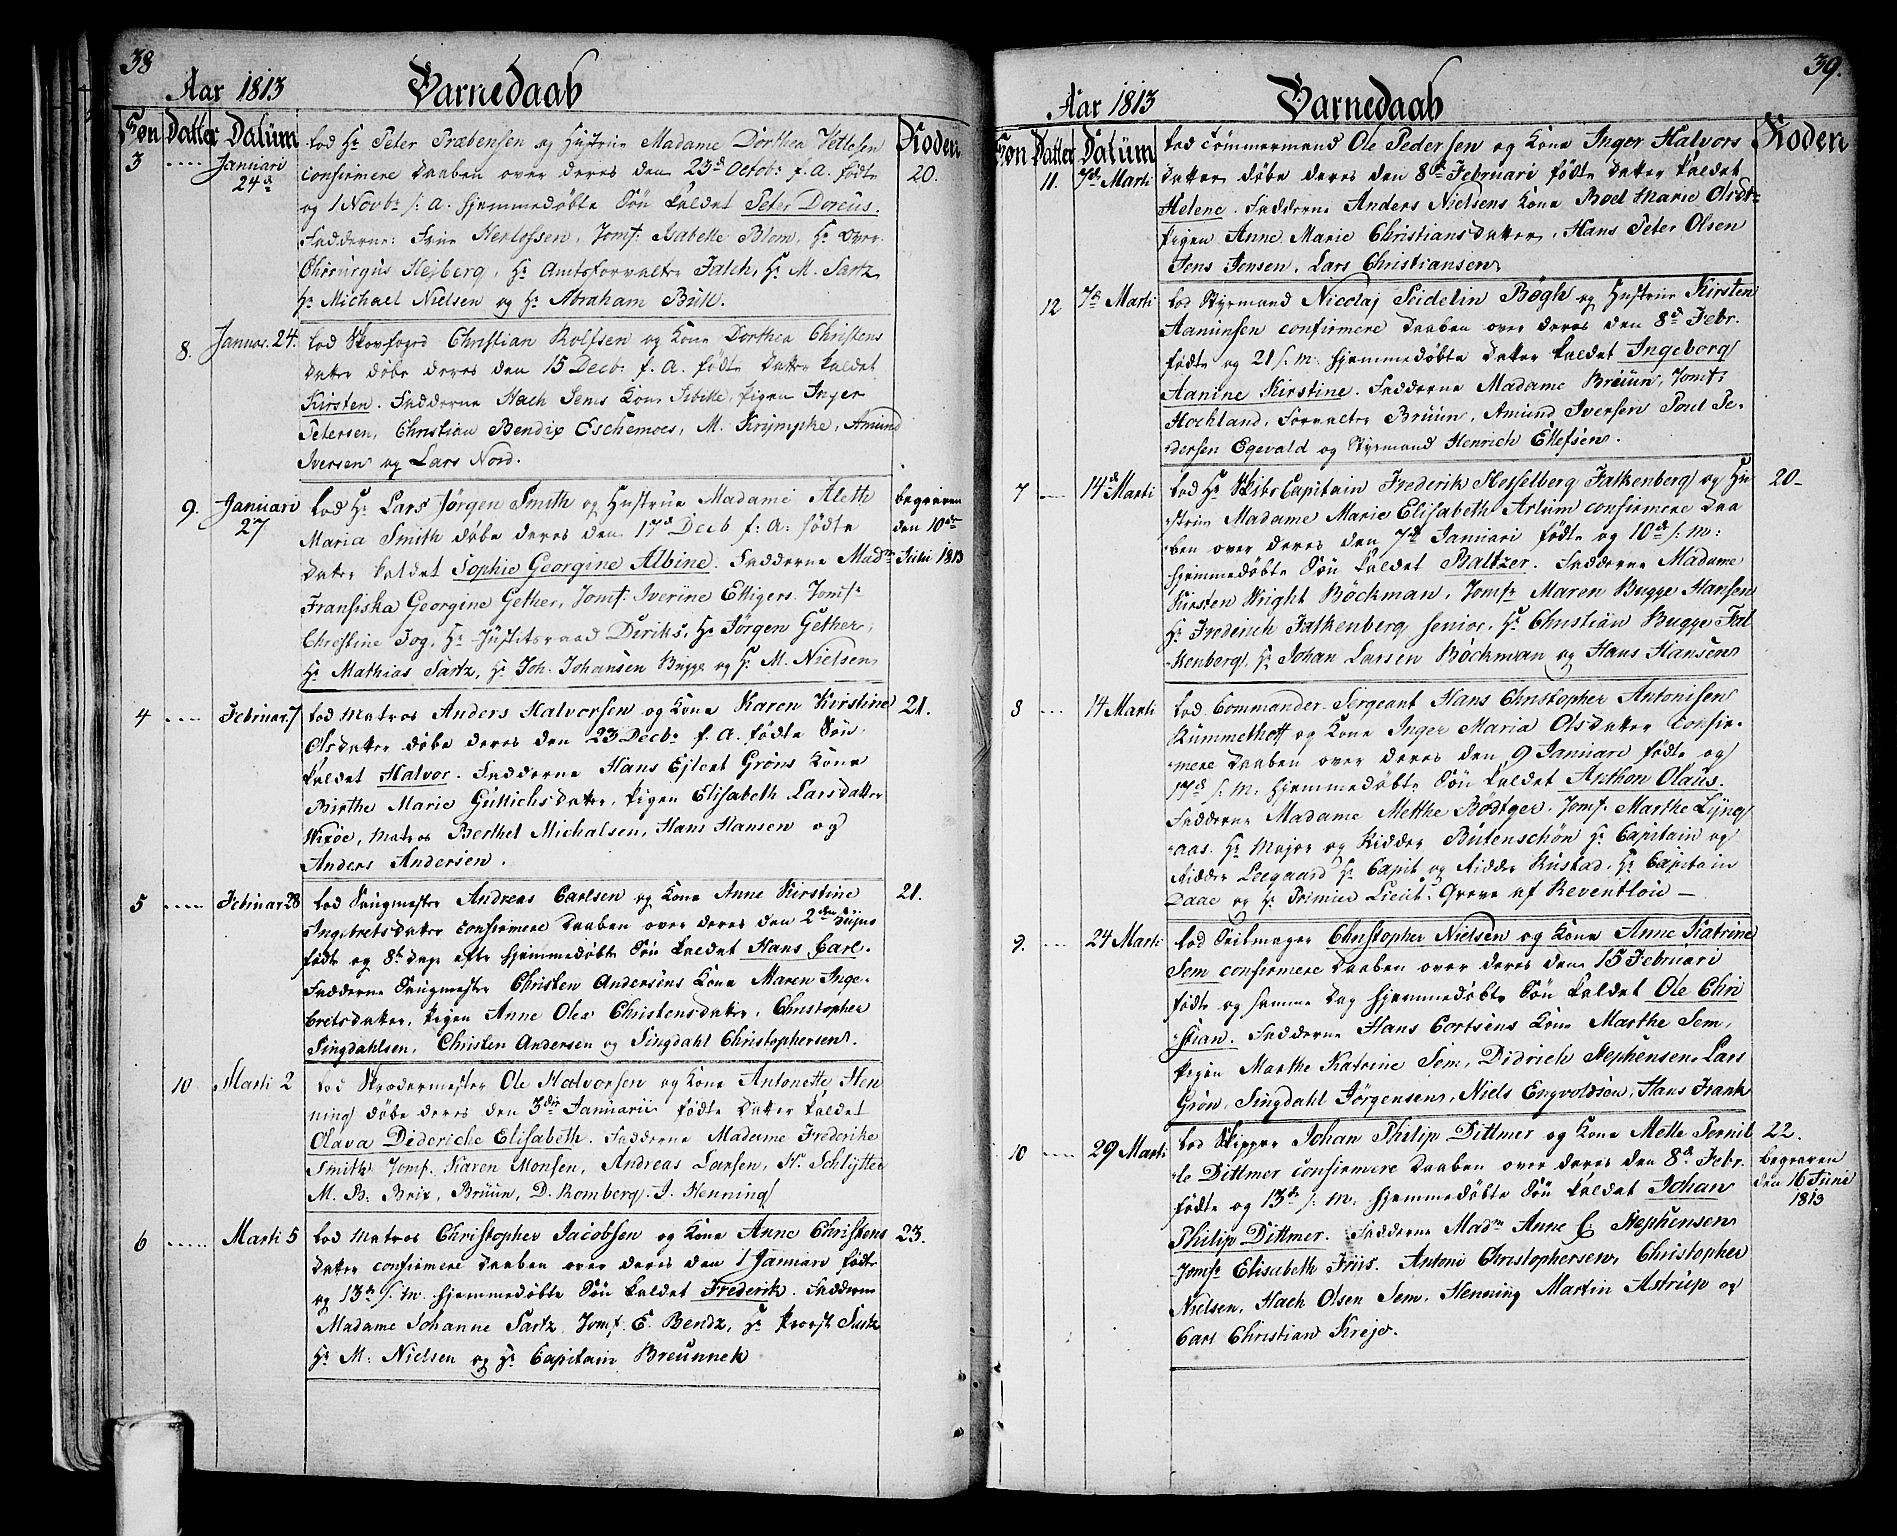 38
Aar 1813 Barnedaab
Søn Datter Datum Koden
3 ---- Januari 24d lod Hr Peter Præbensen og Hustrue Madame Dorthea Vettesen
confirmere Daaben over deres den 23d Octobr f. A. fødte 20.
og 1 Novbr s: a. hjemmedøbte Søn kaldet Peter Dorcus.
Fadderne: Frue Herlofsen, Jomf: Isabelle Blom, Hr Over
Chirurgus Hejberg, Hr Amtsforvalter Falch, Hr M. Sartz
Hr Michael Nielsen og Hr Abraham Bull.
8. Januar. 24. lod Skovfoged Christian Rolfsen og Kone Dorthea Christens
datter døbe deres den 15 Decbr f. A. fødte Datter kaldet
Kirsten. Fadderne Hach Jens's Kone Sibille, Pigen Inger
Petersen, Christian Bendix Eschemoes, M. Krympke, Amund
Iversen og Lars Nord.
9. Januari 27 lod Hr Lars Jørgen Smith og Hustrue Madame Alette begraven
Maria Smith døbe deres den 17d Decb f: A: fødte den 10de
Datter kaldet Sophie Georgine Albine. Fadderne Madm Julii 1813
Fransiska Georgine Gether, Jomf. Iverine Ettigers Jomfr
Christine Fog, Hr Justitsraad Deriks, Hr Jørgen Gether,
Hr Mathias Sartz, Hr Joh. Johansen Bugge og Hr M. Nielsen
4 ---- Februar 7 lod Matros Anders Halvorsen og Kone Karen Kirstine 21.
Olsdatter døbe deres den 23 Decbr f. A. fødte Søn
kaldet Halvor. Fadderne Hans Ejlert Grøns Kone
Birthe Marie Guttichsdatter, Pigen Elisabeth Larsdatter
Wixøe, Matros Berthel Michalsen, Hans Hansen og
Anders Andersen.
5 ----- Februar 28 lod Taugmester Andreas Carlsen og Kone Anne Kirstine 21.
Ingebretsdatter confirmere Daaben over deres den 2den Hujus
fødte og 8de Dage efter hjemmedøbte Søn kaldet Hans Carl.
Fadderne Taugmester Christen Andersens Kone Maren Inge-
bretsdatter, Pigen Anne Olea Christensdatter, Christopher
Singdahlsen, Christen Andersen og Singdahl Christophersen.
10 Marti 2 lod Skrædermester Ole Halvorsen og Kone Antonette Hen
ning døbe deres den 3die Januarii fødte Datter kaldet
Olava Dideriche Elisabeth. Fadderne Madame Frederike
Smith, Jomf. Karen Monsen, Andreas Larsen, H. Schlytter
M. B. Brix, Brüün, D. Romberg, J. Henning
6 ----- Marti 5 lod Matros Christopher Jacobsen og Kone Anne Christens 23.
datter confirmere Daaben over deres den 1 Januari fødte
og 13de s. m. hjemmedøbte Søn kaldet Frederik. Fadderne
Madame Johanne Sartz Jomf. E. Bendz, Hr Provst Sartz
Hr M: Nielsen og Hr Capitain Breunnek
39.
Aar 1813 Barnedaab
Søn Datter Datum Koden
11. 7de Marti lod Tømmermand Ole Pedersen og Kone Inger Halvors
datter døbe deres den 8de Februari fødte Datter kaldet
Helene. Fadderne Anders Nielsens Kone Boel Marie Olsdtr
Pigen Anne Marie Christiansdatter, Hans Peter Olsen
Jens Jensen, Lars Christiansen
12 7de Marti lod Styrmand Nicolaj Seidelin Bøgh og Hustrue Kirsten
Aanunsen confirmere Daaben over deres den 8d Febr.
fødte og 21 s. m. hjemmedøbte Datter kaldet Ingeborg
Aanine Kirstine. Fadderne Madame Brüün, Jomf:
Hochland, Forvalter Brüün, Amund Iversen Poul Pe-
dersen Egevald og Styrmand Henrich Ellefsen.
7 --- 14d Marti lod Hr Skibs Capitain Frederik Hesselberg Falkenberg og Hu 20-
strue Madame Marie Elisabeth Arlum confirmere Daa
ben over deres den 7de Januari fødte og 10de s: m:
hjemmedøbte Søn kaldet Baltzer. Fadderne Madame
Kirsten Wright Böckman, Jomfr Maren Bugge Hansen
Hr Frederich Falkenberg senior, Hr Christian Bugge Fal
kenberg, Hr Johan Larsen Böckman og Hans Hansen
8 ---- 14 Marti lod Commander-Sergeant Hans Christopher Antonisen
Kummelhoff og Kone Inger Maria Olsdatter confir-
mere Daaben over deres den 9 Januari fødte og
17de s. m. hjemmedøbte Søn kaldet Anthon Olaus.
Fadderne Madame Metthe Bödtger. Jomf: Marthe Lyng
aas. Hr Major og Ridder Butenschön Hr Capitain og
Ridder Leegaard Hr Capit og Ridder Rustad, Hr Capitain
Daae og Hr Primier Lieut: Greve af Reventlou —
9. --- 24 Marti lod Seilmager Christopher Nielsen og Kone Anne Katrine
Sem confirmere Daaben over deres den 15 Februari
fødte og samme Dag hjemmedøbte Søn kaldet Ole Chri
stian. Fadderne Hans Cortsens Kone Marthe Sem,
Pigen Marthe Katrine Sem, Didrich Stephensen, Lars
Grøn, Singdahl Jørgensen, Niels Engvoldsen, Hans Frank
10 ---- 29 Marti lod Skipper Johan Philip Dittmer og Kone Mette Pernil 22.
le Dittmer confirmere Daaben over deres den 8de Febr. begraven
fødte og 13de s. m. hjemmedøbte Søn kaldet Johan den 16 Junii
Philip Dittmer. Fadderne Madm Anne C. Stephensen 1813
Jomfr Elisabeth Friis. Antoni Christophersen, Christopher
Nielsen, Hach Olsen Sem, Henning Martin Astrup og
Carl Christian Kreje.